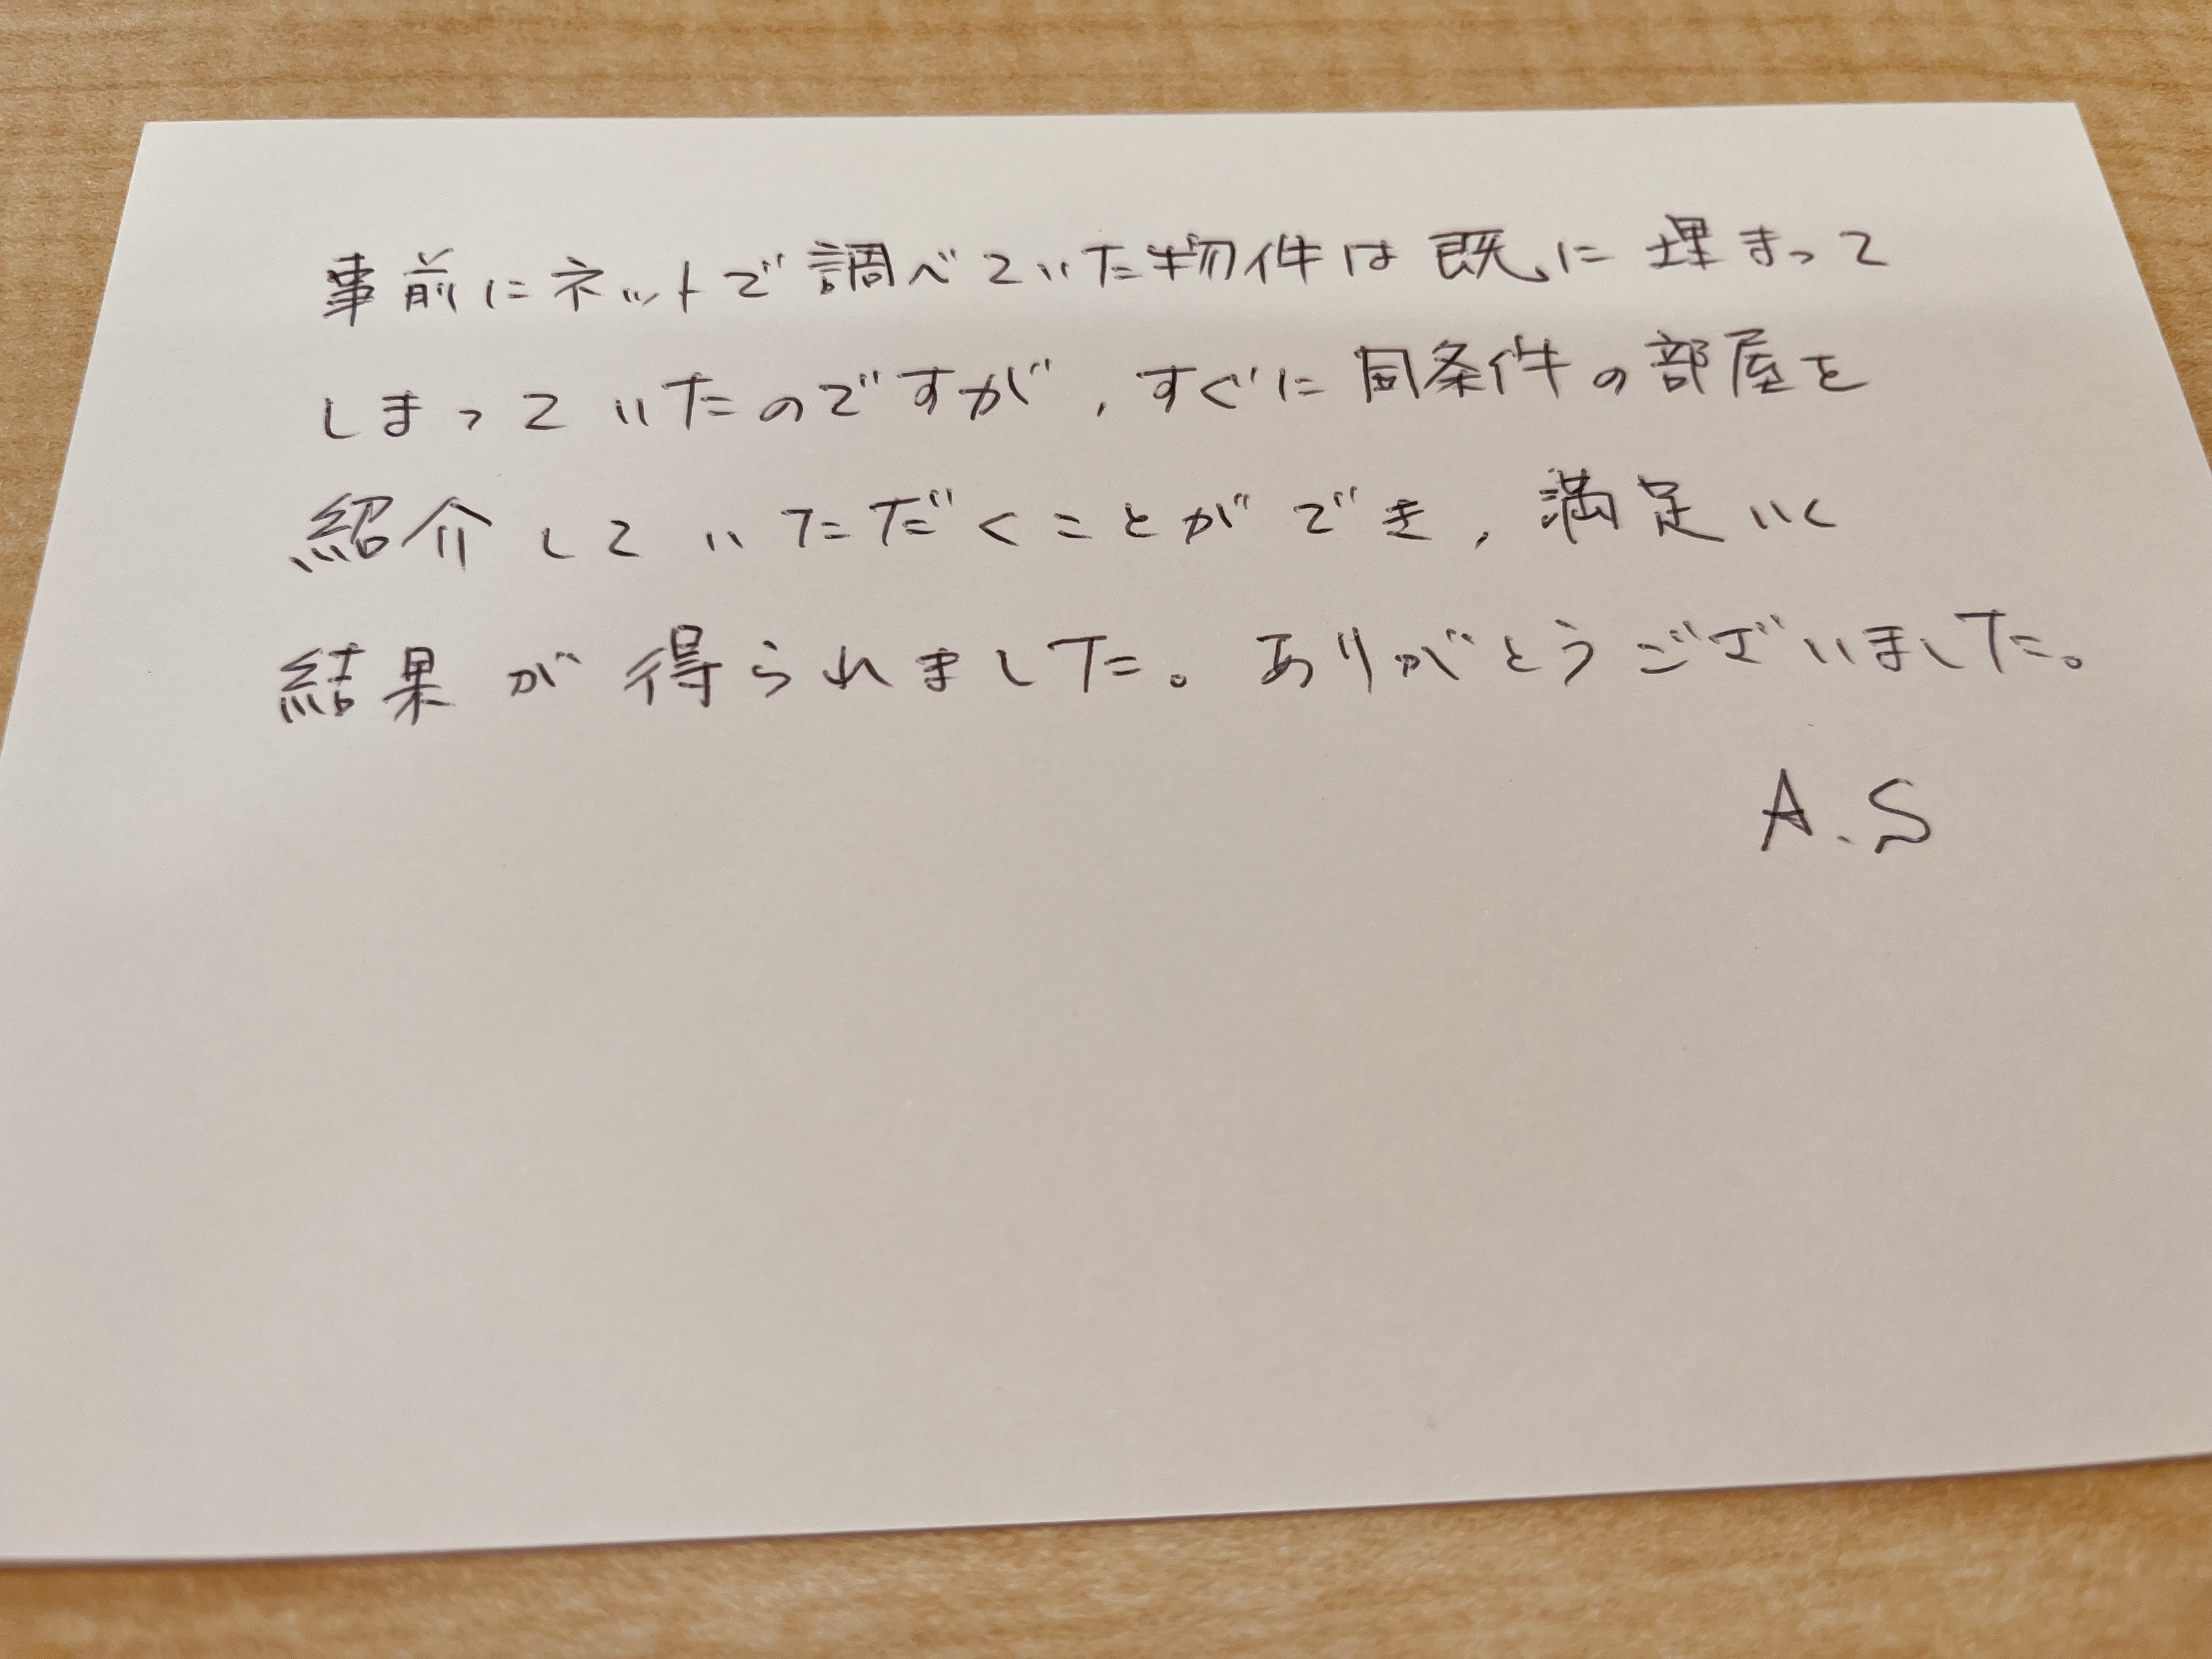 事前にネットで調べていた物件は既に埋まって
しまっていたのですが,すぐに同条件の部屋を
紹介していただくことができ,満足いく
結果が得られました。ありがとうございました。
A.S